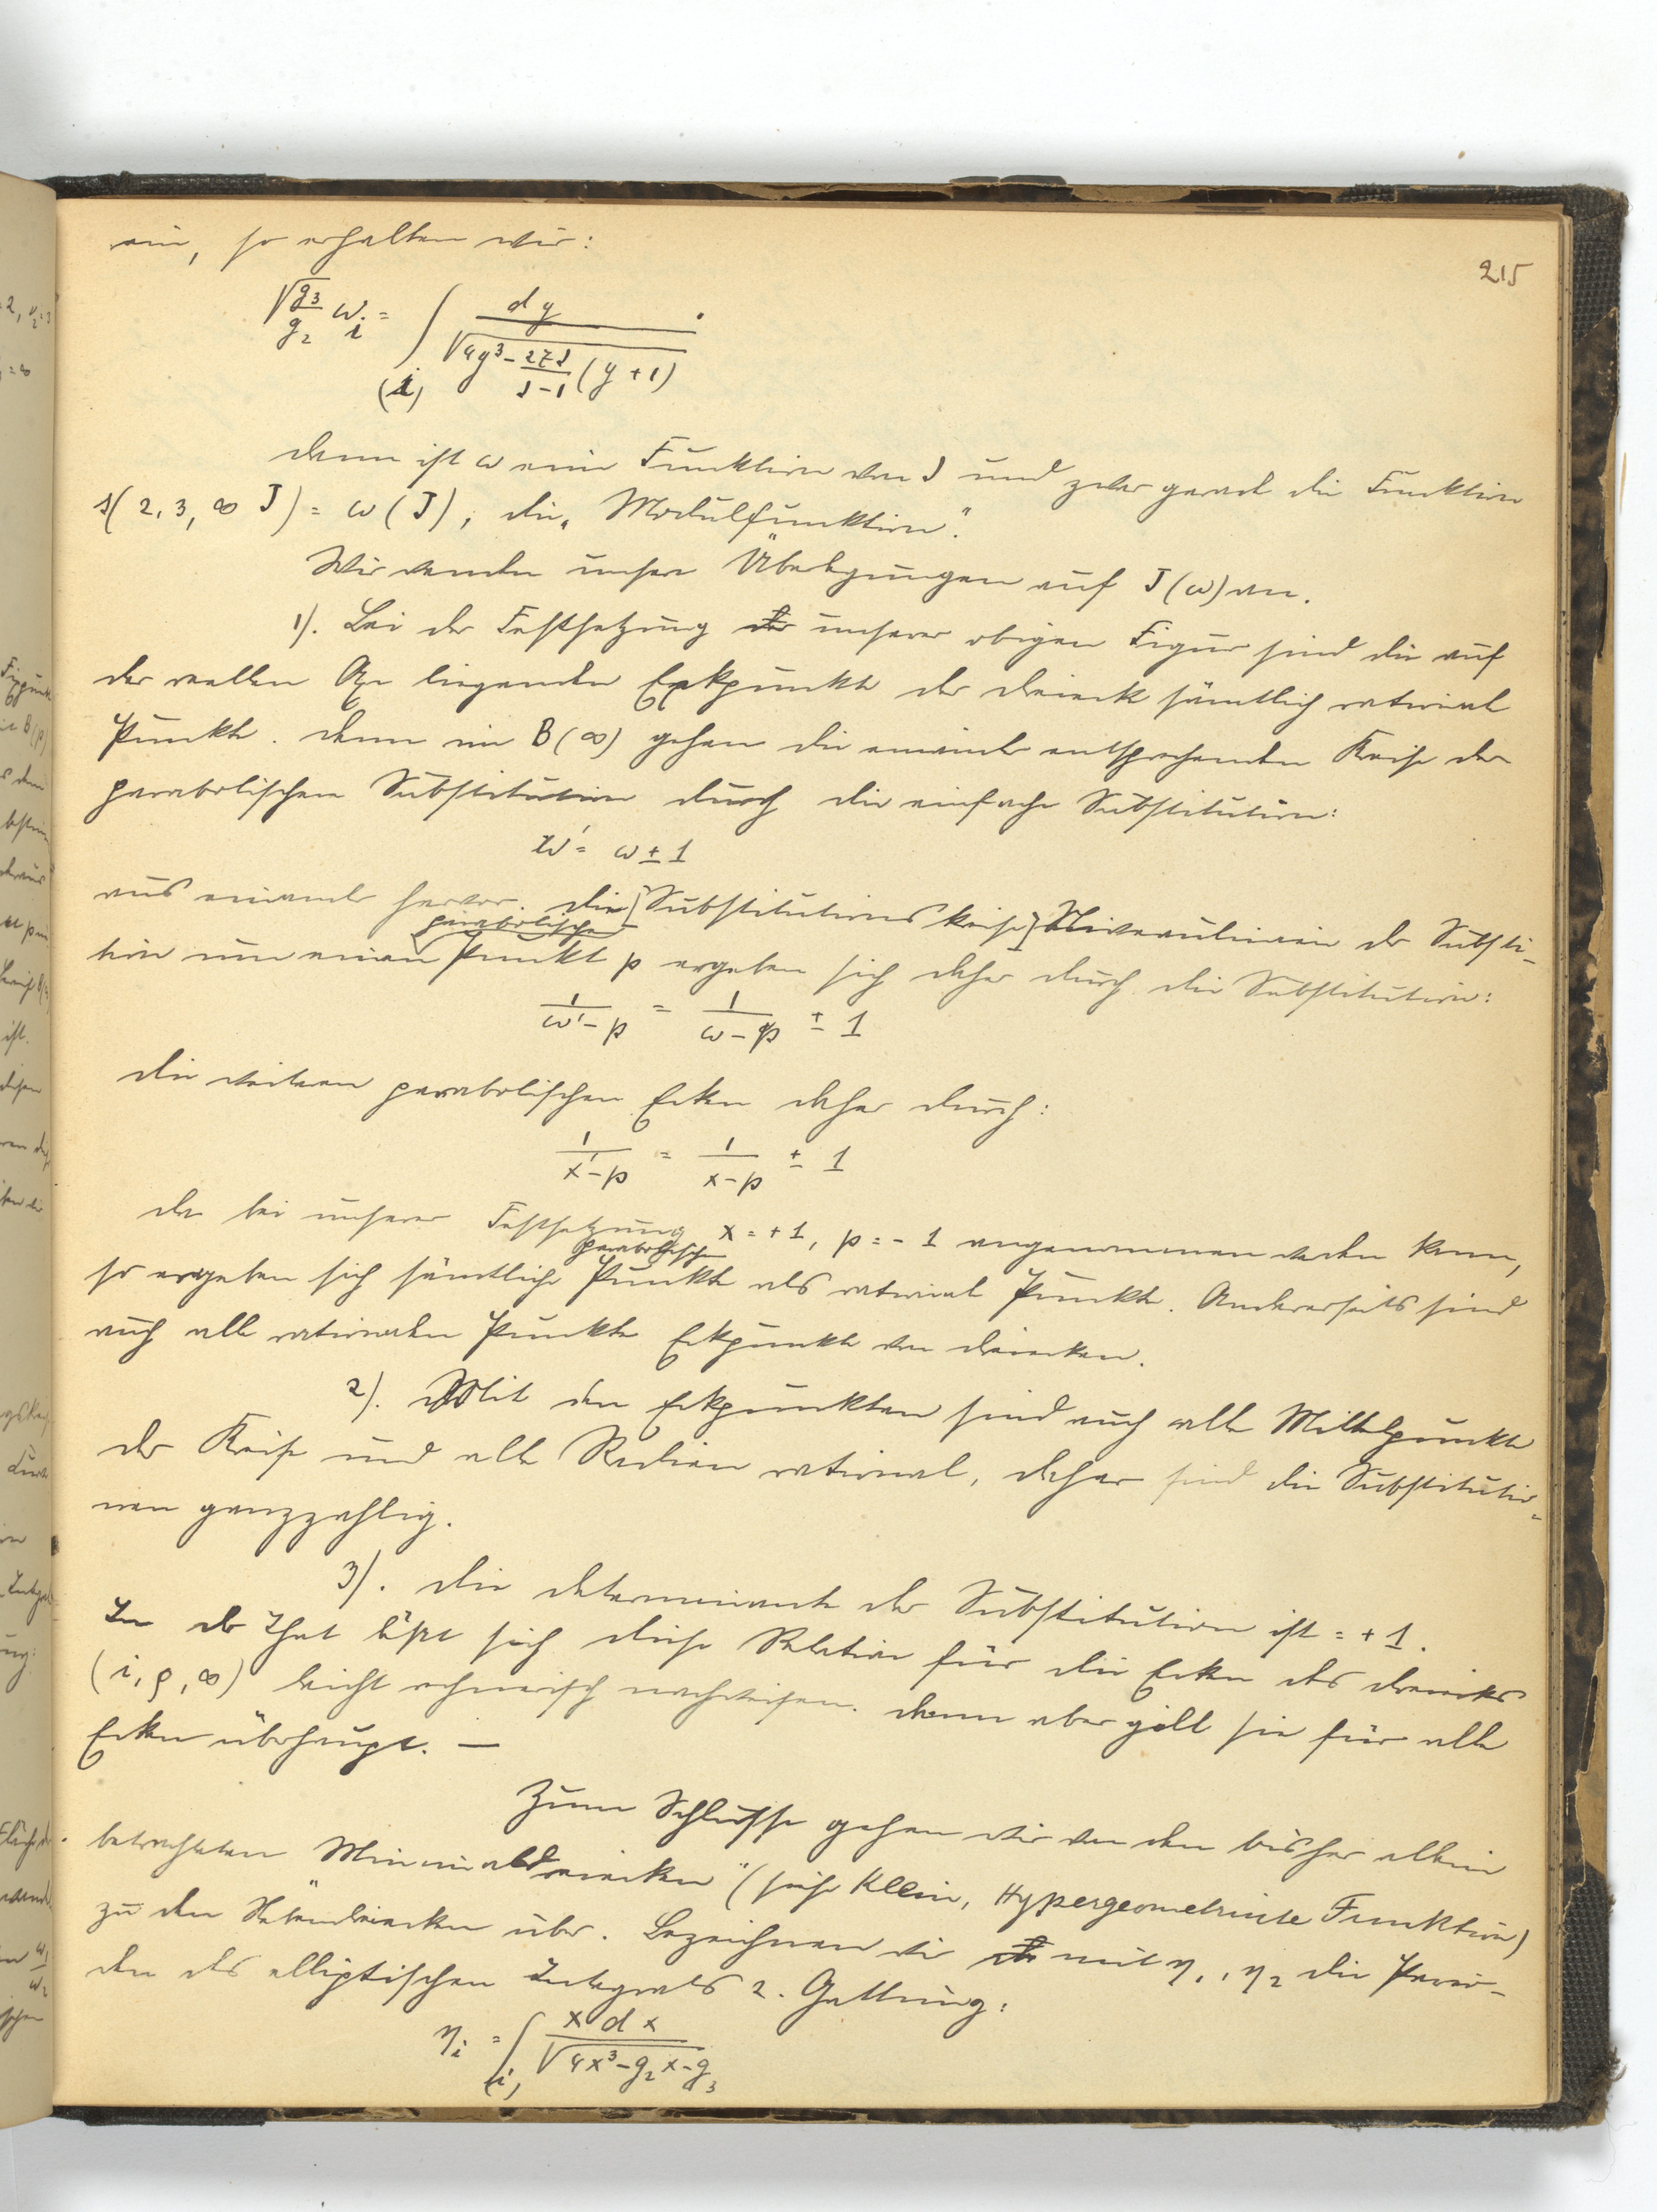 215
ein, so erhalten wir:
√(g3/g2) ω_i = ∫_(i) dy / √(4y³ - 27J/(J-1) (y+1))
dann ist ω eine Funktion von J und zwar gerade die Funktion
s(2, 3, ∞ J) = ω(J), die „Modulfunktion".
Wir wenden unsere Überlegungen auf J(ω) an.
1). Bei der Festsetzung unserer obigen Figur sind die auf
der reellen Axe liegenden Eckpunkte der Dreiecke sämtlich rationale
Punkte. Denn in B(∞) gehen die einander entsprechenden Kreise der
parabolischen Substitution durch die einfache Substitution:
ω' = ω ± 1
aus einander hervor. Die [Substitutionskreise] Niveaulinien der Substi-
tion um einen parabolischen Punkt p ergeben sich daher durch die Substitution:
1/(ω'-p) = 1/(ω-p) ± 1
die weiteren parabolischen Ecken daher durch:
1/(x'-p) = 1/(x-p) ± 1
da bei unserer Festsetzung x = +1, p = -1 angenommen werden kann,
so ergeben sich sämtliche parabolische Punkte als rationale Punkte. Andererseits sind
auch alle rationalen Punkte Eckpunkte von Dreiecken.
2). Mit den Eckpunkten sind auch alle Mittelpunkte
der Kreise und alle Radien rational, daher sind die Substitutio-
nen ganzzahlig.
3). Die Determinante der Substitution ist = +1.
In der That läßt sich diese Relation für die Ecken des Dreiecks
(i, ρ, ∞) leicht rechnerisch nachweisen. Dann aber gilt sie für alle
Ecken überhaupt. —
Zum Schlusse gehen wir von den bisher allein
betrachteten Minimaldreiecken" (siehe Klein, Hypergeometrische Funktion)
zu den Nebendreiecken über. Bezeichnen wir mit η1, η2 die Perio-
den des elliptischen Integrals 2. Gattung:
η_i = ∫_(i) x dx / √(4x³ - g2x - g3)